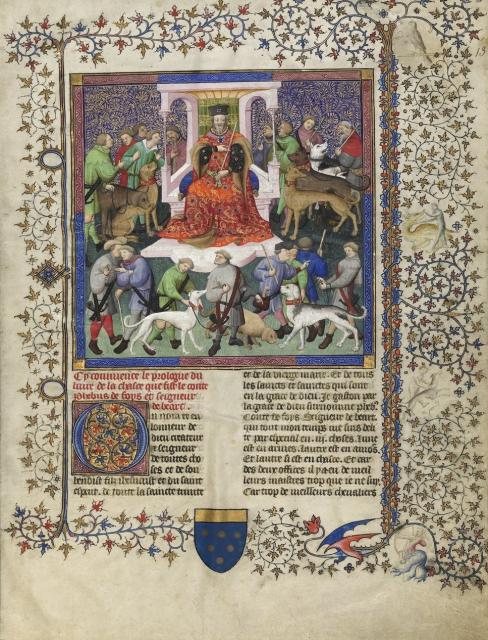 Cy commence le prologue du
liure de la chasse que fist le conte
phebus de foys et seigneur
de bearn.
lonneur de
dieu createur
et seigneur
de toutes cho
ses et de son
benoist filz ihesucrist et du saint
esperit. de toute la saincte trinite
et de la vierge marie. Et de tous
les saincts et sainctes qui sont
en la grace de dieu. Je gaston par
la grace de dieu surnomme phebus
Conte de foys. Seigneur de bearn.
qui tout mon temps me suis deli
te par especial en .iij. choses. lune
est en armes. lautre est en amours.
Et lautre si est en chasce. Et car
des deux offices il ya eu de meil
leurs maistres trop que ie ne suy.
Car trop de meilleurs cheualiers